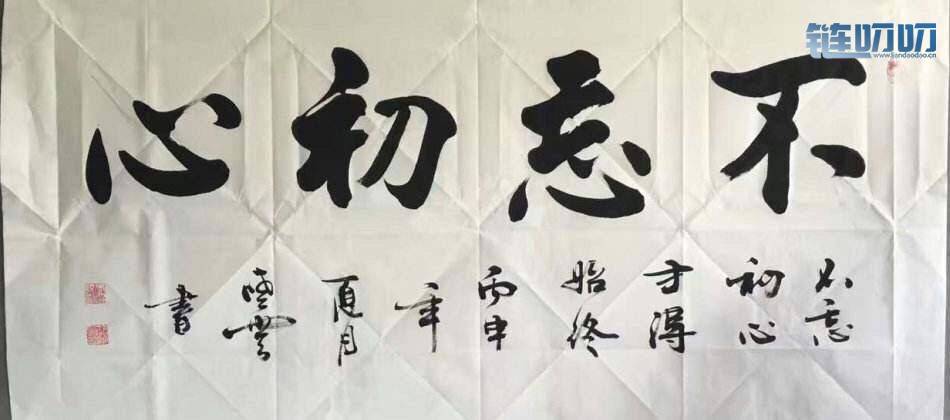 不忘初心
不忘
初心
方得
始终
丙申
年
夏月
书
链叨叨
www.liandaodao.cn